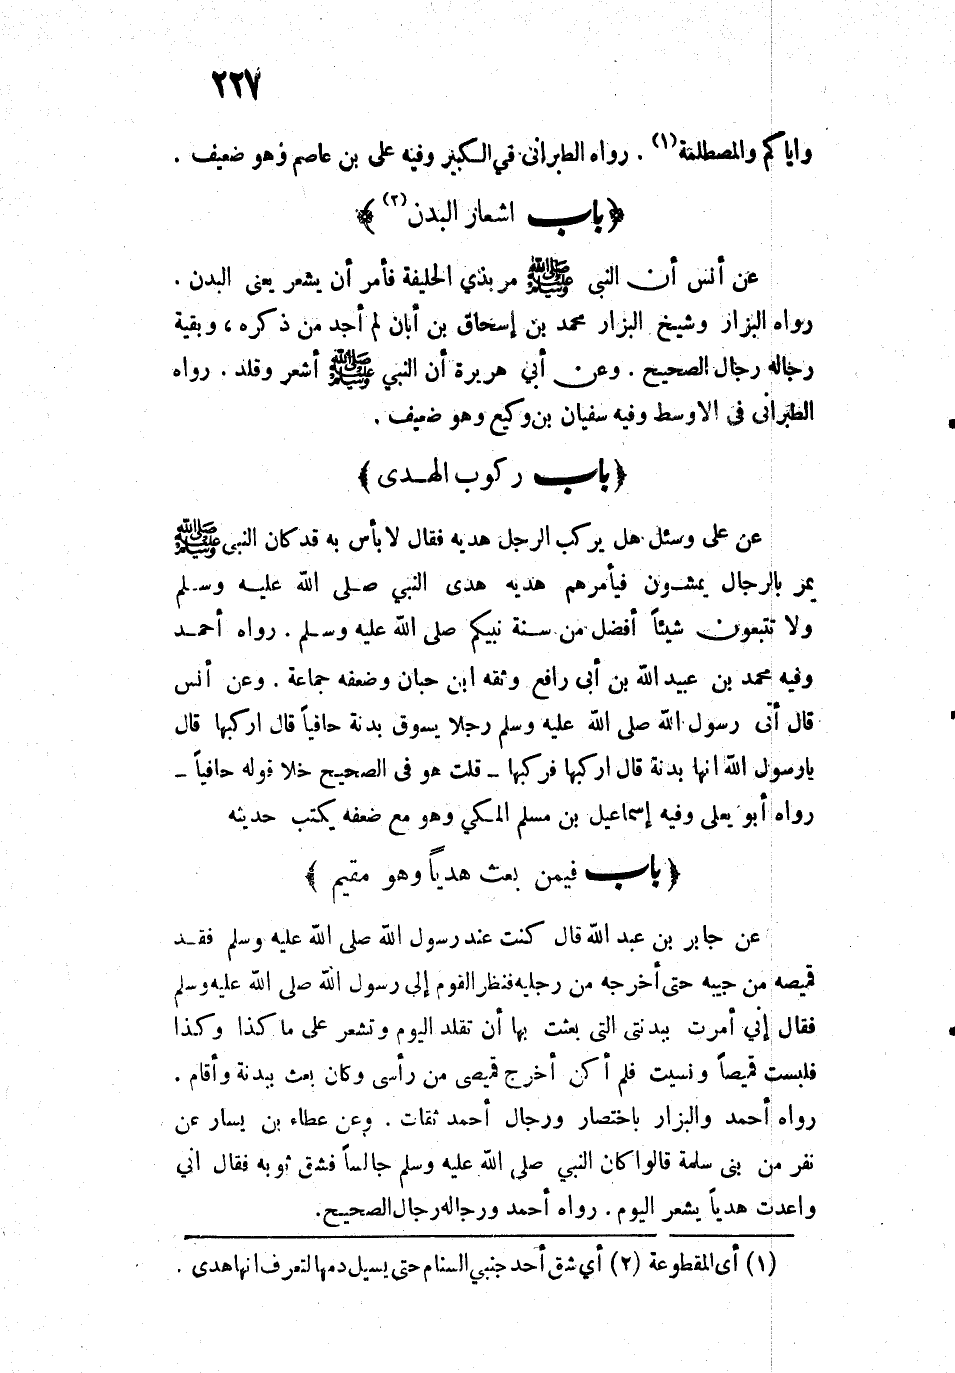 ٢٢٧
واياكم والمصطلمة(١) . رواه الطبرانى فى الكبير وفيه على بن عاصم وهو ضعيف .
﴿ باب اشعار البدن(٢) ﴾
عن أنس أن النبى ﷺ مر بذي الحليفة فأمر أن يشعر يعنى البدن .
رواه البزار وشيخ البزار محمد بن إسحاق بن أبان لم أجد من ذكره ، وبقية
رجاله رجال الصحيح . وعن أبي هريرة أن النبي ﷺ أشعر وقلد . رواه
الطبرانى فى الاوسط وفيه سفيان بن وكيع وهو ضعيف .
﴿ باب ركوب الهدى ﴾
عن على وسئل هل يركب الرجل هديه فقال لا بأس به قد كان النبى ﷺ
يمر بالرجال يمشون فيأمرهم هديه هدى النبي صلى الله عليه وسلم
ولا تتبعون شيئاً أفضل من سنة نبيكم صلى الله عليه وسلم . رواه أحمد
وفيه محمد بن عبيد الله بن أبى رافع وثقه ابن حبان وضعفه جماعة . وعن أنس
قال أتى رسول الله صلى الله عليه وسلم رجلا يسوق بدنة حافياً قال اركبها قال
يارسول الله انها بدنة قال اركبها فركبها - قلت هو فى الصحيح خلا قوله حافياً -
رواه أبو يعلى وفيه إسماعيل بن مسلم المكي وهو مع ضعفه يكتب حديثه
﴿ باب فيمن بعث هدياً وهو مقيم ﴾
عن جابر بن عبد الله قال كنت عند رسول الله صلى الله عليه وسلم فقد
قميصه من جيبه حتى أخرجه من رجليه فنظر القوم إلى رسول الله صلى الله عليه وسلم
فقال إني أمرت ببدنتى التى بعثت بها أن تقلد اليوم وتشعر على ماكذا وكذا
فلبست قميصاً ونسيت فلم أكن أخرج قميصى من رأسى وكان بعث ببدنة وأقام .
رواه أحمد والبزار باختصار ورجال أحمد ثقات . وعن عطاء بن يسار عن
نفر من بنى سلمة قالوا كان النبي صلى الله عليه وسلم جالساً فشق ثوبه فقال انى
واعدت هدياً يشعر اليوم . رواه أحمد ورجاله رجال الصحيح .
(١) أى المقطوعة (٢) أي شق أحد جنبي السنام حتى يسيل دمها لتعرف انها هدى .